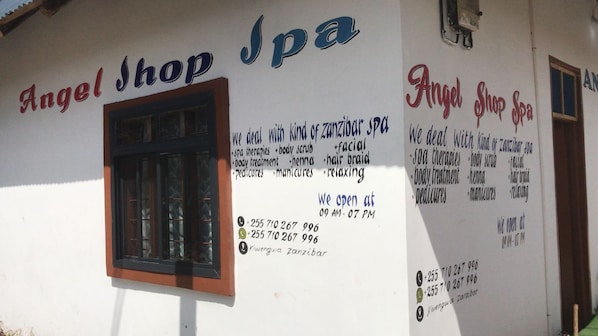 Angel Shop Spa
We deal with kind of zanzibar spa
•spa therapies •body scrub •facial
•body treatment •henna •hair braid
•pedicures •manicures •relaxing
We open at
09 AM - 07 PM
+255 710 267 996
+255 710 267 996
Kiwengwa zanzibar
Angel Shop Spa
We deal with kind of zanzibar spa
•spa therapies •body scrub •facial
•body treatment •henna •hair braid
•pedicures •manicures •relaxing
We open at
09 AM - 07 PM
+255 710 267 996
+255 710 267 996
Kiwengwa zanzibar
AN